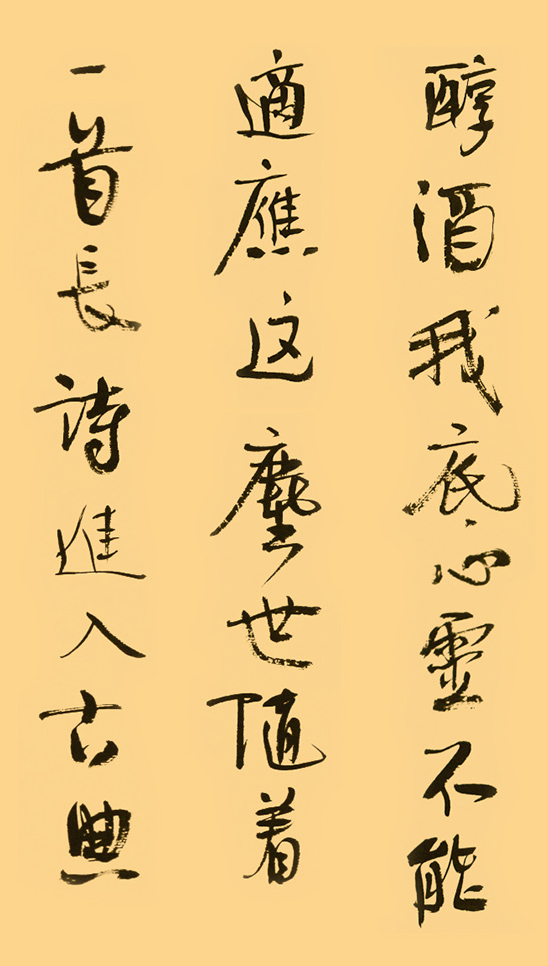 醇酒我底心靈不能
適應这塵世随着
一首長詩進入古典